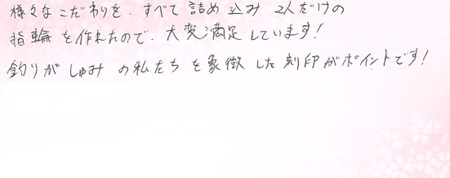 様々なこだわりを、すべて詰め込み 2人だけの
指輪を作れたので、大変満足しています!
釣りがしゅみの私たちを象徴した刻印がポイントです!